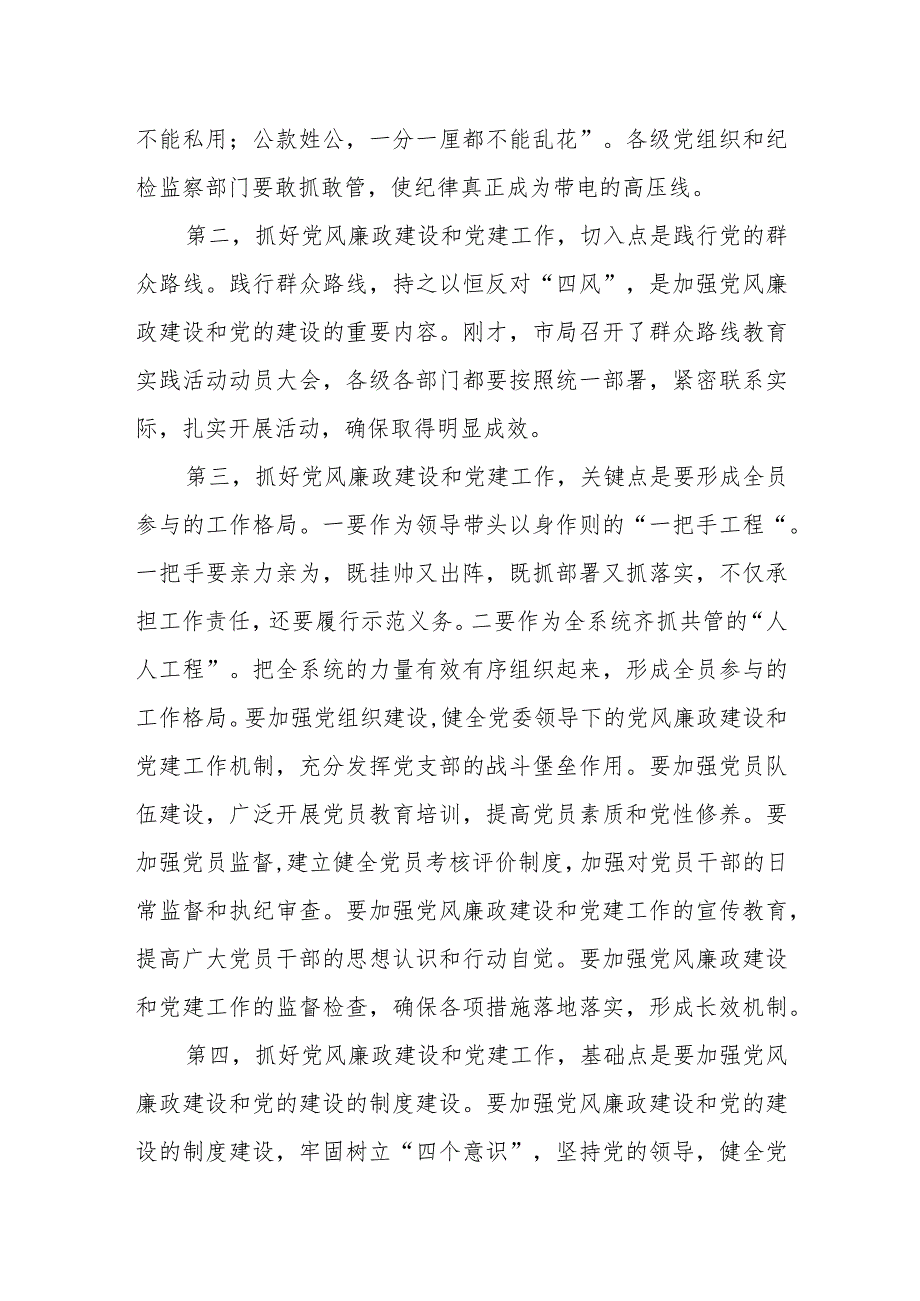 不能私用；公款姓公，一分一厘都不能乱花”。各级党组织和纪
检监察部门要敢抓敢管，使纪律真正成为带电的高压线。
第二，抓好党风廉政建设和党建工作，切入点是践行党的群
众路线。践行群众路线，持之以恒反对“四风”，是加强党风廉
政建设和党的建设的重要内容。刚才，市局召开了群众路线教育
实践活动动员大会，各级各部门都要按照统一部署，紧密联系实
际，扎实开展活动，确保取得明显成效。
第三，抓好党风廉政建设和党建工作，关键点是要形成全员
参与的工作格局。一要作为领导带头以身作则的“一把手工程“。
一把手要亲力亲为，既挂帅又出阵，既抓部署又抓落实，不仅承
担工作责任,还要履行示范义务。二要作为全系统齐抓共管的“人
人工程”。把全系统的力量有效有序组织起来，形成全员参与的
工作格局。要加强党组织建设,健全党委领导下的党风廉政建设和
党建工作机制，充分发挥党支部的战斗堡垒作用。要加强党员队
伍建设，广泛开展党员教育培训，提高党员素质和党性修养。要
加强党员监督,建立健全党员考核评价制度，加强对党员干部的日
常监督和执纪审查。要加强党风廉政建设和党建工作的宣传教育，
提高广大党员干部的思想认识和行动自觉。要加强党风廉政建设
和党建工作的监督检查，确保各项措施落地落实，形成长效机制。
第四，抓好党风廉政建设和党建工作，基础点是要加强党风
廉政建设和党的建设的制度建设。要加强党风廉政建设和党的建
设的制度建设，牢固树立“四个意识”，坚持党的领导，健全党